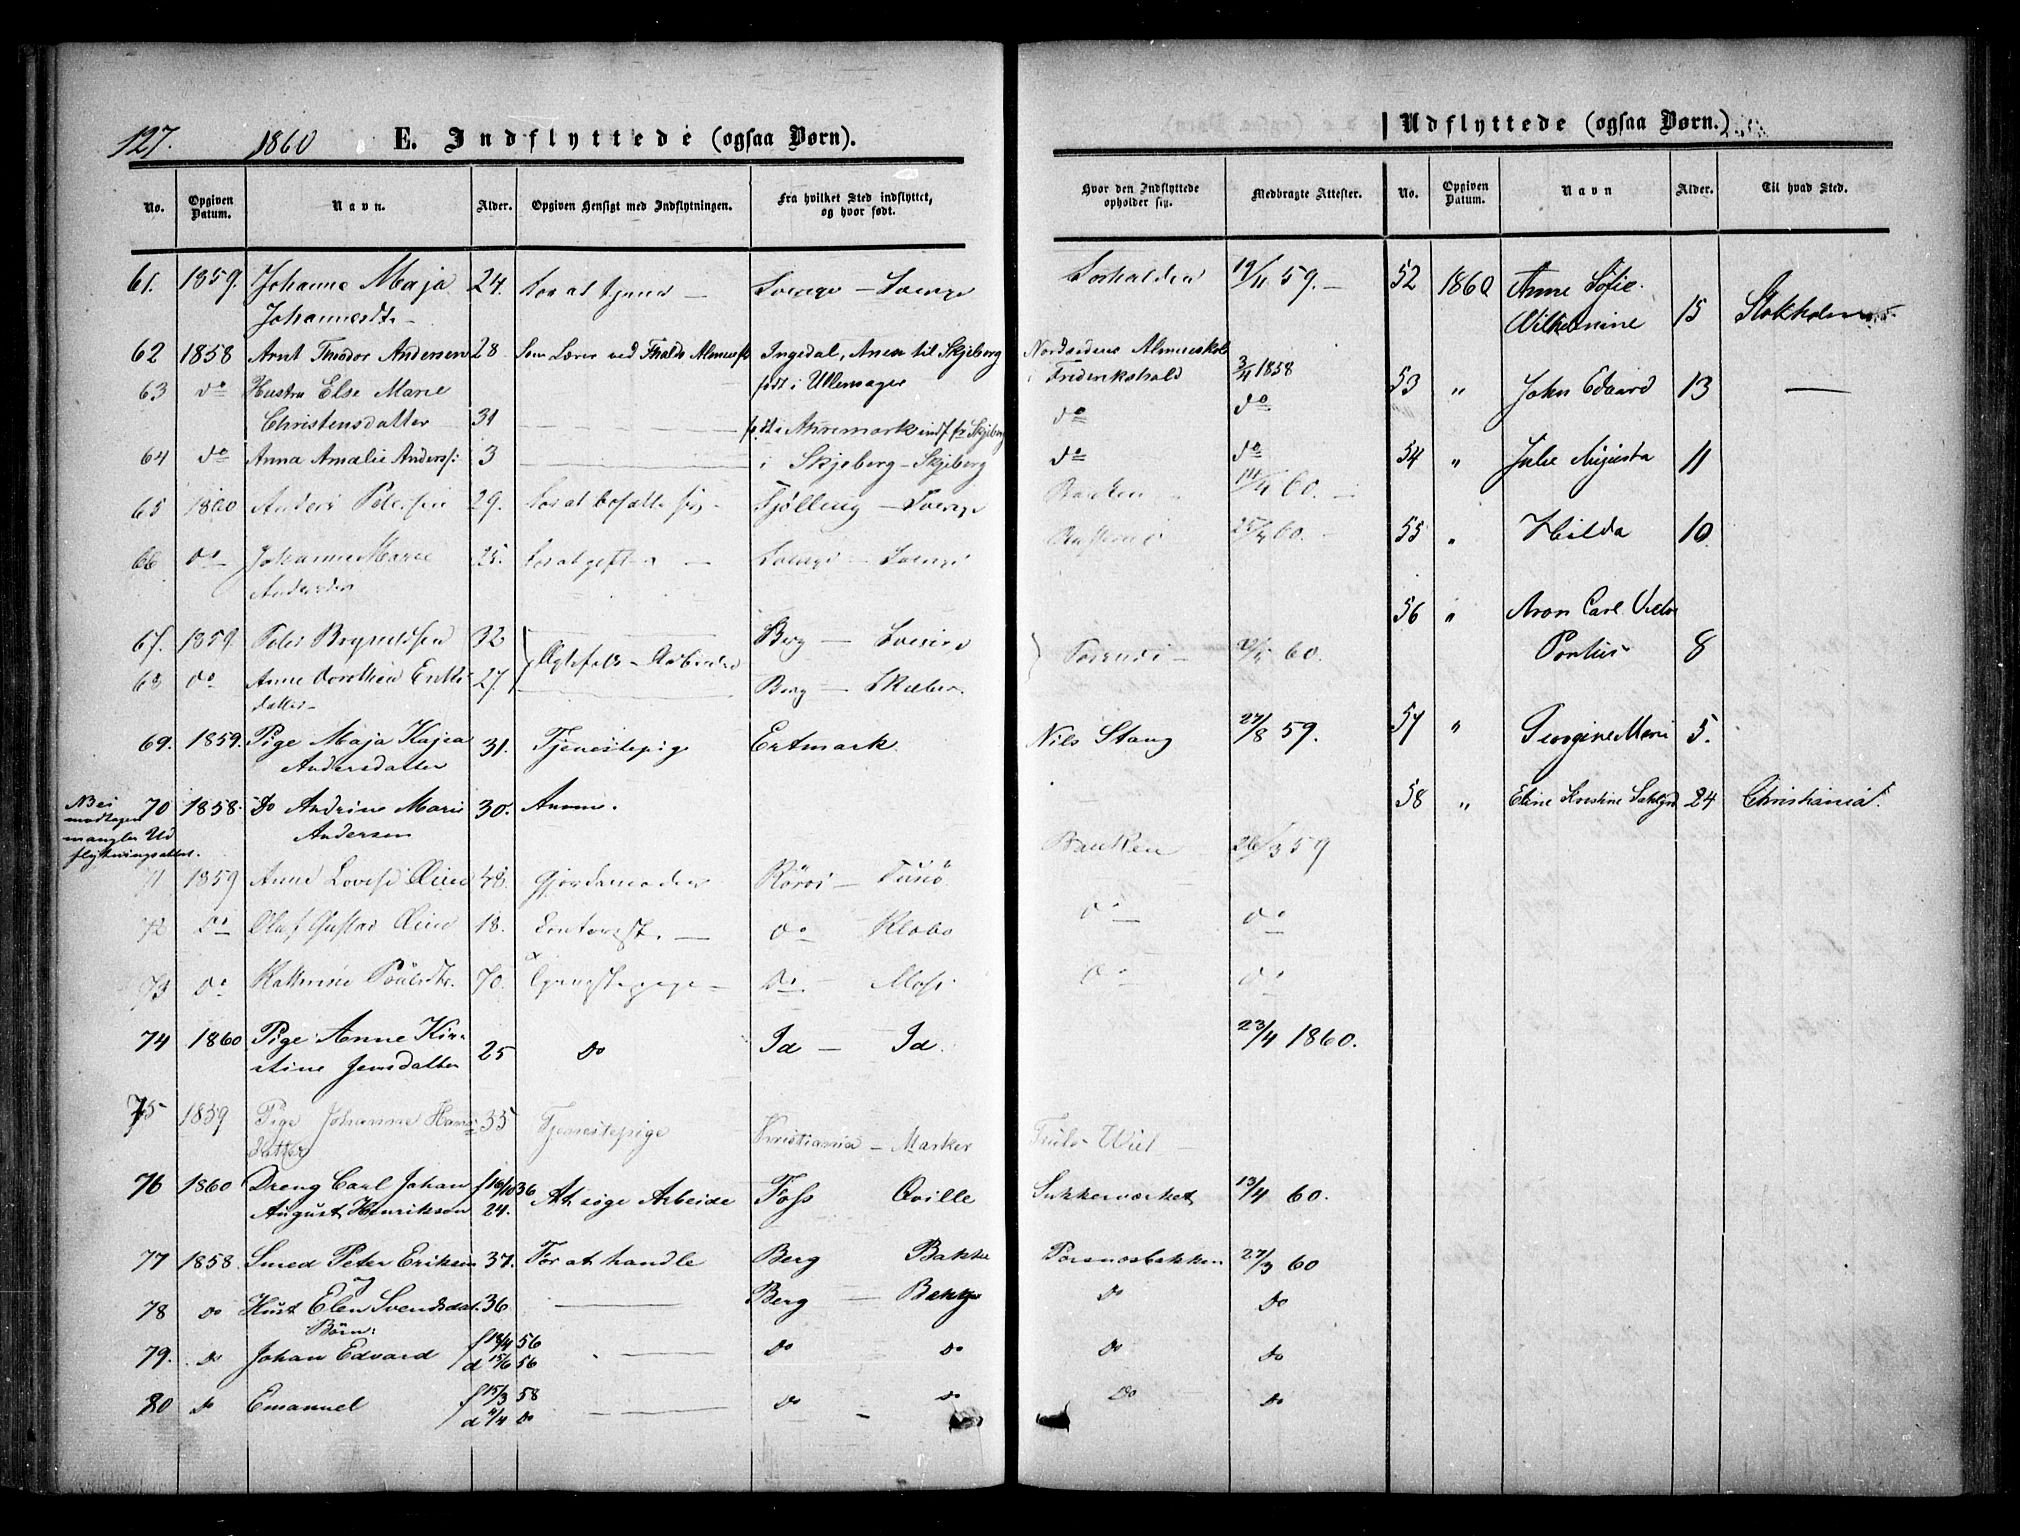 127. 1860 E. Indflyttede (ogsaa Børn).
No. Opgiven Datum. Navn. Alder. Opgiven Hensigt med Indflytningen. Fra hvilket Sted indflyttet, og hvor født.
61. 1859. Johanne Maja 24. For at tjene — Sverige — Sverige
Johannesdt.
62 1858 Arnt Theodor Andersen 28. Som Lærer ved Almuesk Ingedal, Anex til Skjeberg
63 do Hustru Else Marie født i Ullensager
Christensdatter 31 født i Arremark indf fr Skjeberg
64 do Anna Amalie Anderss: 3 i Skjeberg — Skjeberg
65 1860 Anders Petersen 29. For at bosætte sig — Fjølling — Sverige
66 do Johanne Marie 25. For at gifte — Sverige — Sverige
Andersdr
67. 1859. Peter Bryneldsen 32 Berg — Sverige
68 do Anne Dorothea Eriks 27. Berg —
datter
69. 1859. Pige Maja Kajsa 31. Tjenestepige Ertmark
Andersdatter
70 1858. Do Andrine Marie 30. Amme.
Andersen
NB ei modtagen
mangler Ud
flytningsattest.
71 1859 Anne Lovise 48. Gjordemoder Röros — Tunö
72 Do Oluf Gustav 18. Contorist. — do Klæbo
73 do Kathrine Poulsdtr. 70. — Do Moss
74 1860 Pige Anne Kir- 25 Do Id — Id.
stine Jensdatter
75 1859 Pige Johanne Hans 35 Tjenestepige Kristiania — Marker
datter
76 1860 Dreng Carl Johan f 16/10 36 At söge Arbeide Foss Qville
August Henriksen 24.
77 1858. Smed Peter Eriksen 37. For at handle Berg Bakke
78 Do Hust Elen Svendsdat. 36 Berg — Bakke
Börn:
79. Do Johan Edvard f 18/4 56 Do Do
d 15/6 56
80 Do Emanuel f 15/3 58 Do — Do
d 4/4 Do
Udflyttede (ogsaa Børn.)
Hvor den Indflyttede opholder sig. Medbragte Attester. No. Opgiven Datum. Navn Alder. Til hvad Sted.
Sorhalden 19/11 59. — 52 1860 Anne Sofie
Wilhelmine 15 Stokholm
Nordsidens Almueskole
i Frederikshald 3/4 1858 53 " John Edvard 13 —
do do
do do 54 " Julie Augusta 11
Banken 60. —
60. — 55 " Hilda 10
56 " Aron Carl Victor
60. Pontus 8
Nils Stang 27/8 59. 57 " Georgine Marie 5.
58 " Eline Kristine 24 Christiania.
Banken 26/3 59
do do
do do
23/4 1860.
Truls Wiel —
Sukkerværket 13/4 60.
Porsnæsbakken 27/3 60
Do Do
Do Do
Do Do